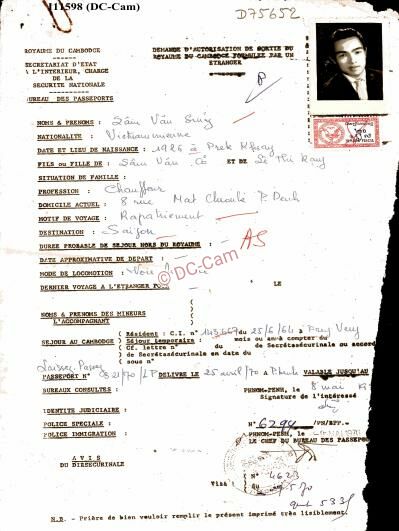 I11598 (DC-Cam)
D75652
ROYAUME DU CAMBODGE
SECRETARIAT D'ETAT
A L'INTERIEUR, CHARGE
DE LA
SECURITE NATIONALE
BUREAU DES PASSEPORTS
DEMANDE D'AUTORISATION DE SORTIE DU
ROYAUME DU CAMBODGE FORMULEE PAR UN
ETRANGER
NOMS & PRENOMS : Lâm Văn
NATIONALITE : Vietnamienne
DATE ET LIEU DE NAISSANCE : 1926 à Prek
FILS ou FILLE DE : Lâm Văn ET DE Lê Thi
SITUATION DE FAMILLE :
PROFESSION : Chauffeur
DOMICILE ACTUEL : 8 rue Mat P. Penh
MOTIF DE VOYAGE : Rapatriement
DESTINATION : Saigon
DUREE PROBABLE DE SEJOUR HORS DU ROYAUME :
AS
DATE APPROXIMATIVE DE DEPART :
MODE DE LOCOMOTION : Voie
© DC-Cam
DERNIER VOYAGE A L'ETRANGER POUR LE
NOMS & PRENOMS DES MINEURS
L'ACCOMPAGNANT
SEJOUR AU CAMBODGE
Résident : C.I. n° du 25/6/64 à Prey Veng
Séjour temporaire : mois ou an à compter du
Cf. lettre n° du de Secrétasécurinale ou accord
de Secrétasécurinale en date du
sous n°
Laissez-Passer
PASSEPORT N° /70/LP DELIVRE LE 25 avril/70 à P.Penh VALABLE JUSQU'AU
BUREAUX CONSULTES : PHNOM-PENH, le 8 mai
Signature de l'intéressé
IDENTITE JUDICIAIRE :
POLICE SPECIALE :
POLICE IMMIGRATION :
N° 6294 /PN/BPP.
PHNOM-PENH, le
LE CHEF DU BUREAU DES PASSEPO
AVIS
DU DIRSECURINALE
Visa :
N° 4623
du
N.B. - Prière de bien vouloir remplir le présent imprimé très lisiblement.